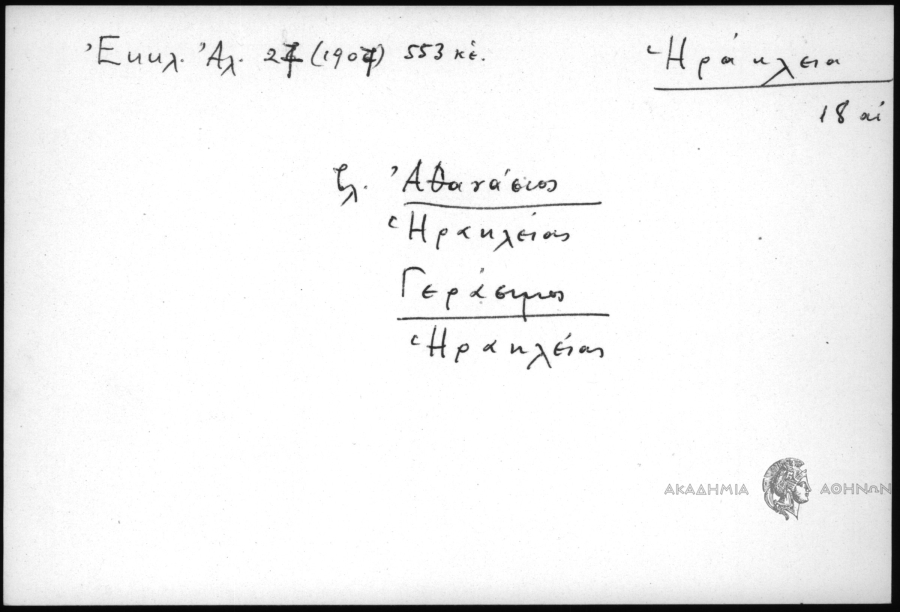 Ἐκκλ. Ἀλ. 27 (1907) 553 κἑ.
Ἡράκλεια
18 αἰ
βλ. Ἀθανάσιος
Ἡρακλείας
Γεράσιμος
Ἡρακλείας
ΑΚΑΔΗΜΙΑ ΑΘΗΝΩΝ